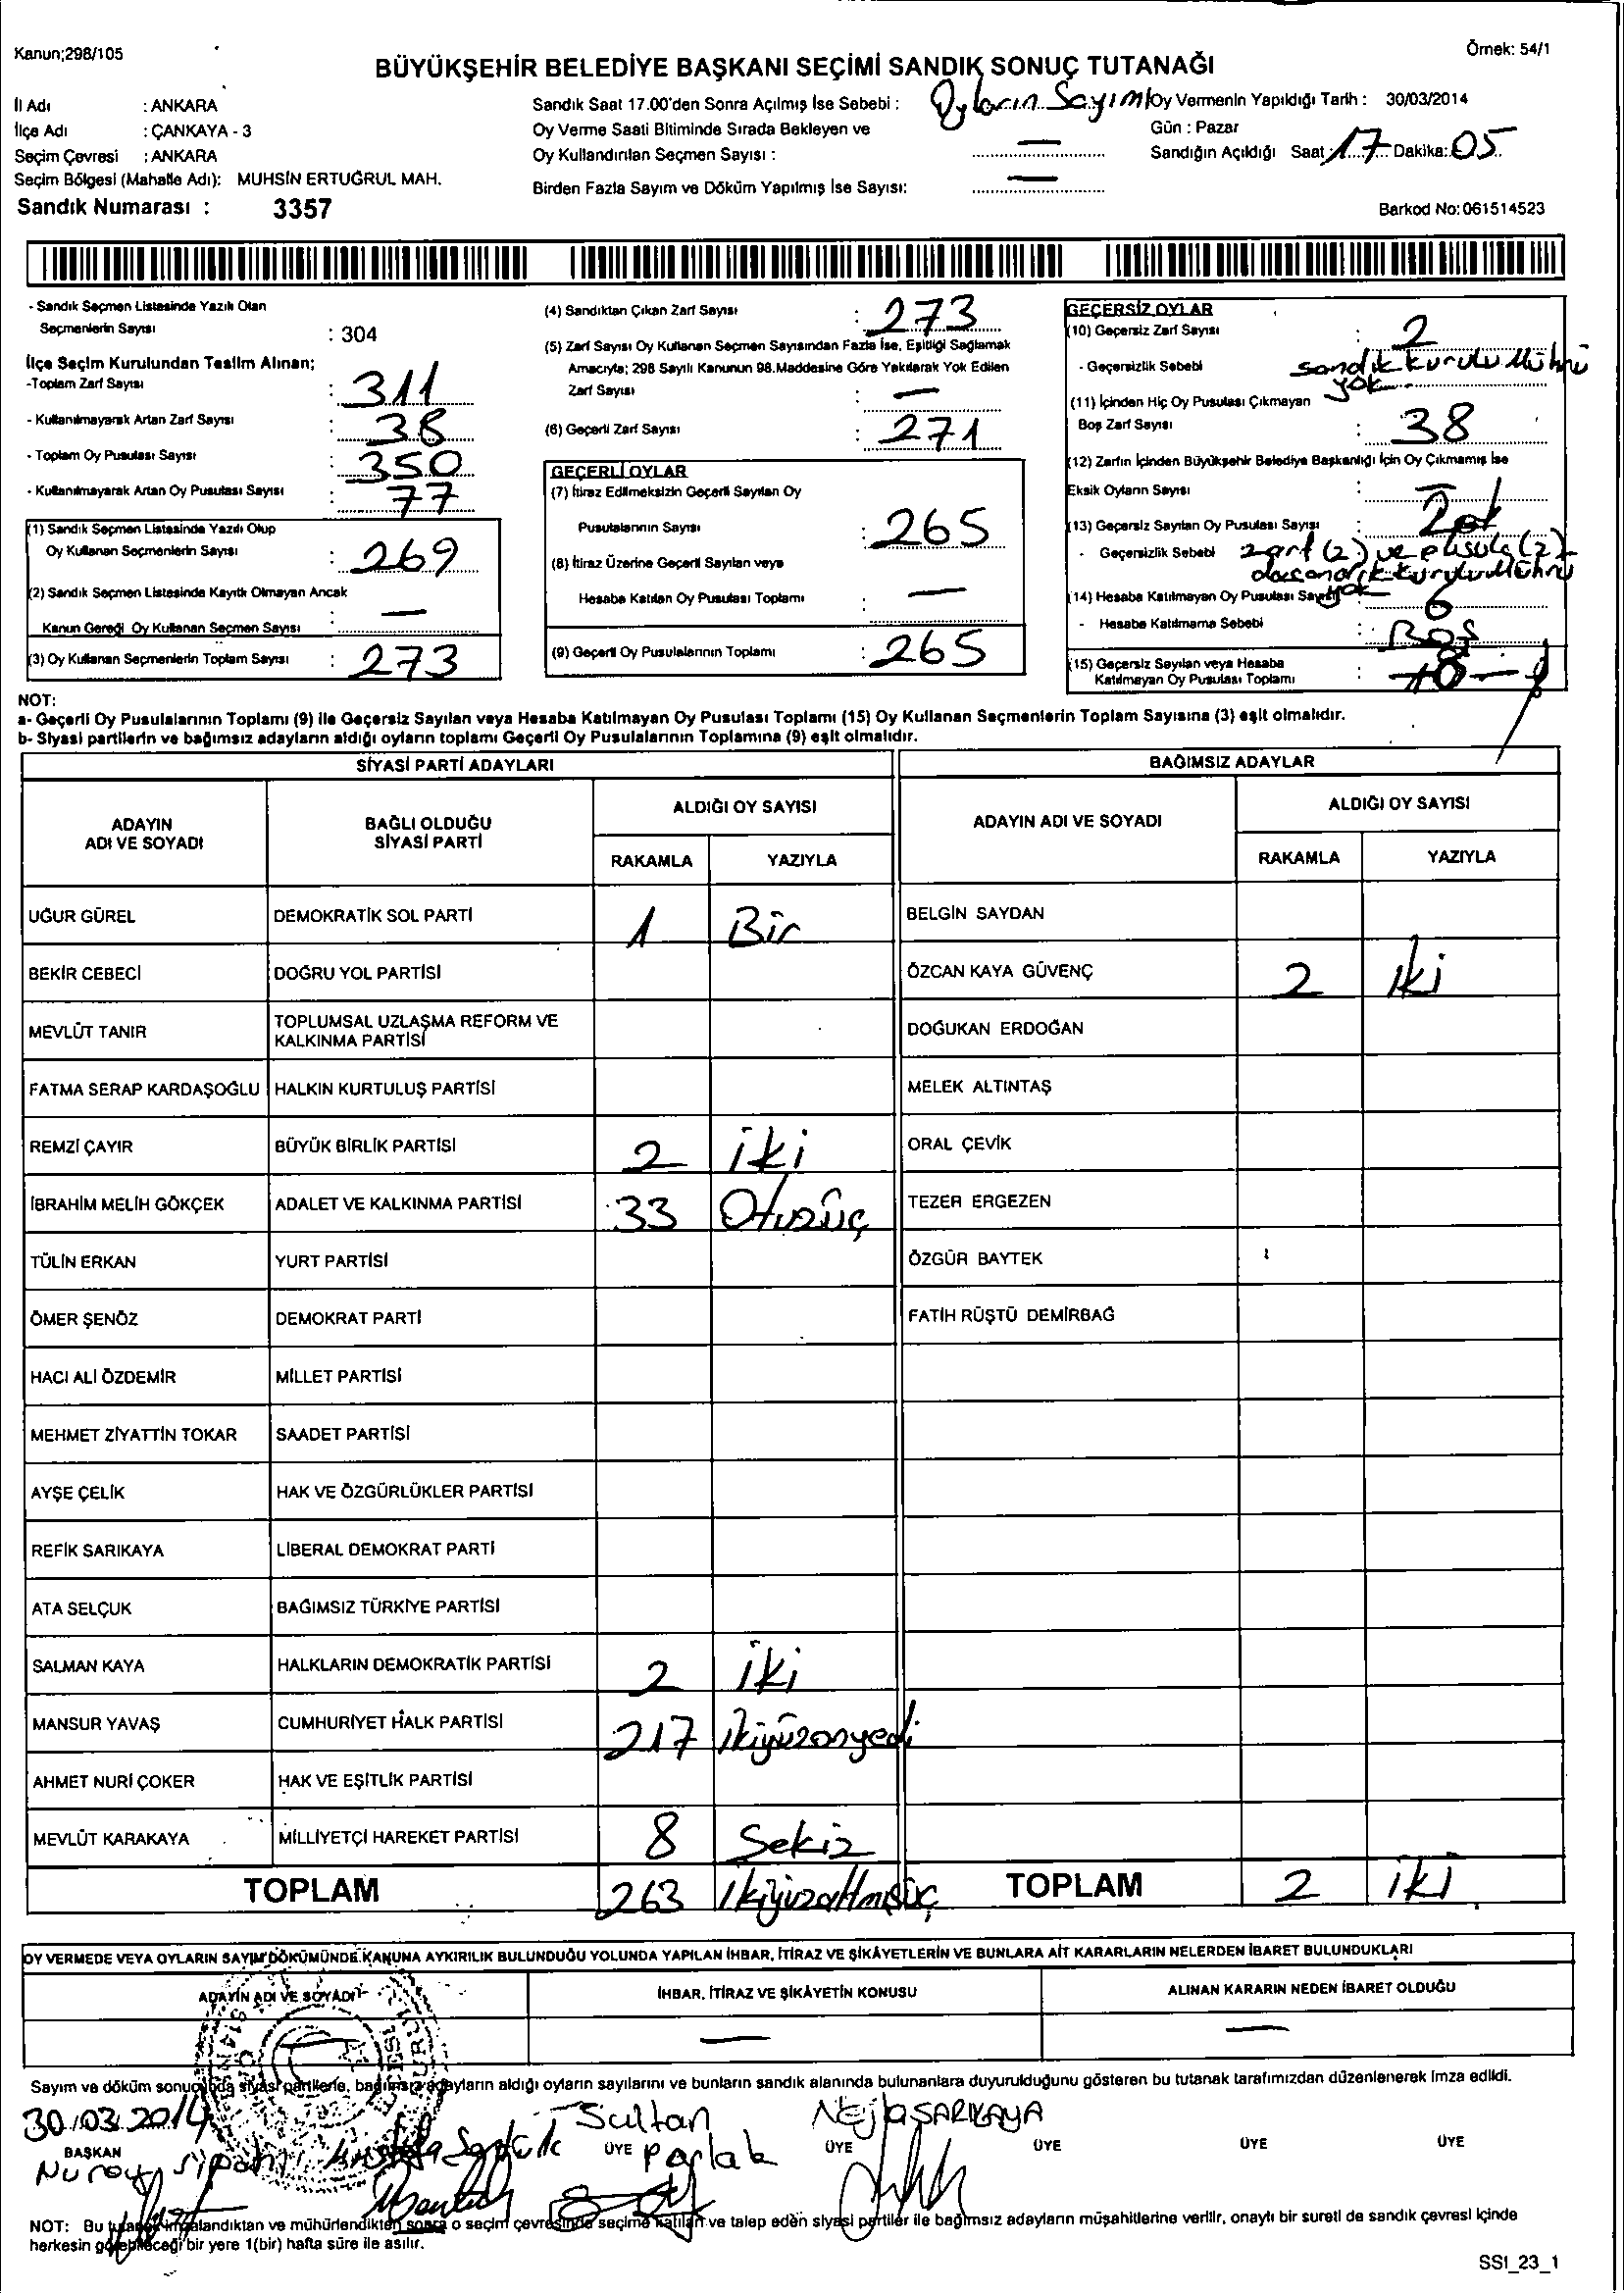 Kanun;298/105
Örnek: 54/1
BÜYÜKŞEHİR BELEDİYE BAŞKANI SEÇİMİ SANDIK SONUÇ TUTANAĞI
İl Adı : ANKARA
İlçe Adı : ÇANKAYA - 3
Seçim Çevresi : ANKARA
Seçim Bölgesi (Mahalle Adı): MUHSİN ERTUĞRUL MAH.
Sandık Numarası : 3357
Sandık Saat 17.00'den Sonra Açılmış İse Sebebi : Oyların Sayımı
Oy Verme Saati Bitiminde Sırada Bekleyen ve
Oy Kullandırılan Seçmen Sayısı : —
Birden Fazla Sayım ve Döküm Yapılmış İse Sayısı: —
Oy Vermenin Yapıldığı Tarih : 30/03/2014
Gün : Pazar
Sandığın Açıldığı Saat: 17 Dakika: 05
Barkod No:061514523
- Sandık Seçmen Listesinde Yazılı Olan
Seçmenlerin Sayısı : 304
İlçe Seçim Kurulundan Teslim Alınan;
-Toplam Zarf Sayısı : 311
- Kullanılmayarak Artan Zarf Sayısı : 38
- Toplam Oy Pusulası Sayısı : 350
- Kullanılmayarak Artan Oy Pusulası Sayısı : 77
(1) Sandık Seçmen Listesinde Yazılı Olup
Oy Kullanan Seçmenlerin Sayısı : 269
(2) Sandık Seçmen Listesinde Kayıtlı Olmayan Ancak
Kanun Gereği Oy Kullanan Seçmen Sayısı : —
(3) Oy Kullanan Seçmenlerin Toplam Sayısı : 273
(4) Sandıktan Çıkan Zarf Sayısı : 273
(5) Zarf Sayısı Oy Kullanan Seçmen Sayısından Fazla İse, Eşitliği Sağlamak
Amacıyla; 298 Sayılı Kanunun 98.Maddesine Göre Yakılarak Yok Edilen
Zarf Sayısı : —
(6) Geçerli Zarf Sayısı : 271
GEÇERLİ OYLAR
(7) İtiraz Edilmeksizin Geçerli Sayılan Oy
Pusulalarının Sayısı : 265
(8) İtiraz Üzerine Geçerli Sayılan veya
Hesaba Katılan Oy Pusulası Toplamı : —
(9) Geçerli Oy Pusulalarının Toplamı : 265
GEÇERSİZ OYLAR
(10) Geçersiz Zarf Sayısı : 2
- Geçersizlik Sebebi sandık kurulu Mührü
yok
(11) İçinden Hiç Oy Pusulası Çıkmayan
Boş Zarf Sayısı : 38
(12) Zarfın İçinden Büyükşehir Belediye Başkanlığı İçin Oy Çıkmamış İse
Eksik Oyların Sayısı : —
(13) Geçersiz Sayılan Oy Pusulası Sayısı :
- Geçersizlik Sebebi zarf (2) ve pusula (2)
da sandık kurulu Mührü
yok
(14) Hesaba Katılmayan Oy Pusulası Sayısı 6
- Hesaba Katılmama Sebebi : Boş
(15) Geçersiz Sayılan veya Hesaba
Katılmayan Oy Pusulası Toplamı : 8
NOT:
a- Geçerli Oy Pusulalarının Toplamı (9) ile Geçersiz Sayılan veya Hesaba Katılmayan Oy Pusulası Toplamı (15) Oy Kullanan Seçmenlerin Toplam Sayısına (3) eşit olmalıdır.
b- Siyasi partilerin ve bağımsız adayların aldığı oyların toplamı Geçerli Oy Pusulalarının Toplamına (9) eşit olmalıdır.
SİYASİ PARTİ ADAYLARI
ADAYIN
ADI VE SOYADI
BAĞLI OLDUĞU
SİYASİ PARTİ
ALDIĞI OY SAYISI
RAKAMLA YAZIYLA
UĞUR GÜREL DEMOKRATİK SOL PARTİ 1 Bir
BEKİR CEBECİ DOĞRU YOL PARTİSİ
MEVLÜT TANIR TOPLUMSAL UZLAŞMA REFORM VE
KALKINMA PARTİSİ
FATMA SERAP KARDAŞOĞLU HALKIN KURTULUŞ PARTİSİ
REMZİ ÇAYIR BÜYÜK BİRLİK PARTİSİ 2 iki
İBRAHİM MELİH GÖKÇEK ADALET VE KALKINMA PARTİSİ 33 Otuzüç
TÜLİN ERKAN YURT PARTİSİ
ÖMER ŞENÖZ DEMOKRAT PARTİ
HACI ALİ ÖZDEMİR MİLLET PARTİSİ
MEHMET ZİYATTİN TOKAR SAADET PARTİSİ
AYŞE ÇELİK HAK VE ÖZGÜRLÜKLER PARTİSİ
REFİK SARIKAYA LİBERAL DEMOKRAT PARTİ
ATA SELÇUK BAĞIMSIZ TÜRKİYE PARTİSİ
SALMAN KAYA HALKLARIN DEMOKRATİK PARTİSİ 2 iki
MANSUR YAVAŞ CUMHURİYET HALK PARTİSİ 217 ikiyüzonyedi
AHMET NURİ ÇOKER HAK VE EŞİTLİK PARTİSİ
MEVLÜT KARAKAYA MİLLİYETÇİ HAREKET PARTİSİ 8 Sekiz
TOPLAM 263 ikiyüzaltmışüç
BAĞIMSIZ ADAYLAR
ADAYIN ADI VE SOYADI
ALDIĞI OY SAYISI
RAKAMLA YAZIYLA
BELGİN SAYDAN
ÖZCAN KAYA GÜVENÇ 2 iki
DOĞUKAN ERDOĞAN
MELEK ALTINTAŞ
ORAL ÇEVİK
TEZER ERGEZEN
ÖZGÜR BAYTEK
FATİH RÜŞTÜ DEMİRBAĞ
TOPLAM 2 iki
OY VERMEDE VEYA OYLARIN SAYIM DÖKÜMÜNDE KANUNA AYKIRILIK BULUNDUĞU YOLUNDA YAPILAN İHBAR, İTİRAZ VE ŞİKÂYETLERİN VE BUNLARA AİT KARARLARIN NELERDEN İBARET BULUNDUKLARI
ADAYIN ADI VE SOYADI
İHBAR, İTİRAZ VE ŞİKÂYETİN KONUSU
ALINAN KARARIN NEDEN İBARET OLDUĞU
— — —
Sayım ve döküm sonucunda siyasi partilerle, bağımsız adayların aldığı oyların sayılarını ve bunların sandık alanında bulunanlara duyurulduğunu gösteren bu tutanak tarafımızdan düzenlenerek imza edildi.
30.03.2014 Sultan Nejla SARIKAYA
BAŞKAN ÜYE ÜYE ÜYE ÜYE ÜYE
Nuray Parlak
NOT: Bu tutanak imzalandıktan ve mühürlendikten sonra o seçim çevresinde seçime katılan ve talep eden siyasi partiler ile bağımsız adayların müşahitlerine verilir, onaylı bir sureti de sandık çevresi içinde
herkesin görebileceği bir yere 1(bir) hafta süre ile asılır.
SSI_23_1